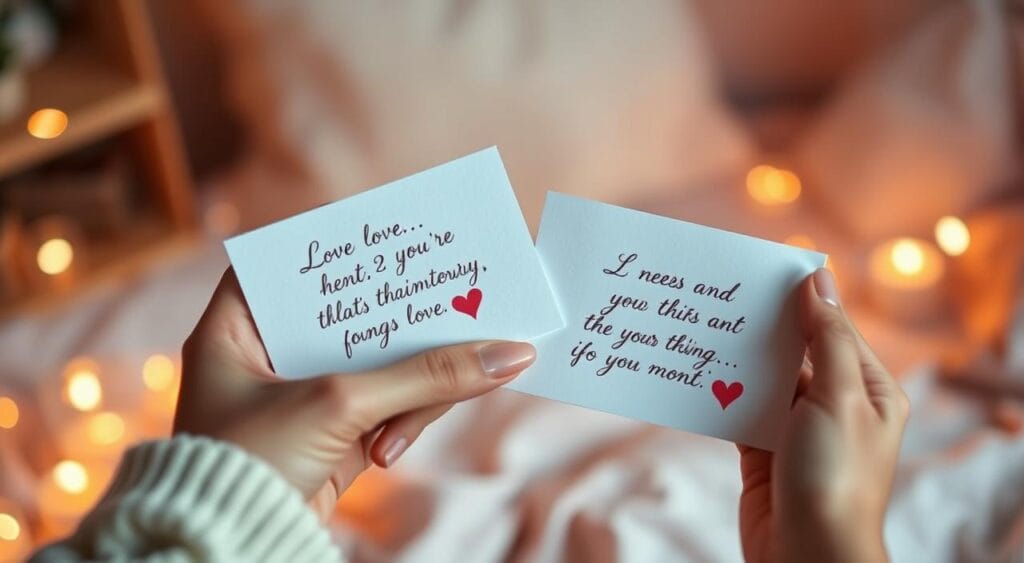 Love love...
hent. 2 you're
thlat's thaimtowby.
foungs love.
L neess and
yow thifs ant
the your thing...
ifo you mont.